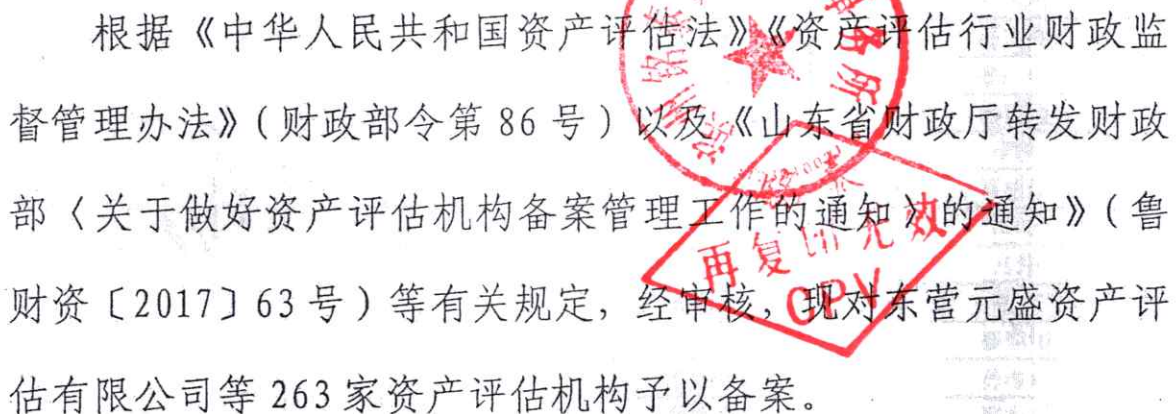 根据《中华人民共和国资产评估法》《资产评估行业财政监
督管理办法》（财政部令第 86 号）以及《山东省财政厅转发财政
部〈关于做好资产评估机构备案管理工作的通知〉的通知》（鲁
财资〔2017〕63 号）等有关规定，经审核，现对东营元盛资产评
估有限公司等 263 家资产评估机构予以备案。
再复印无效